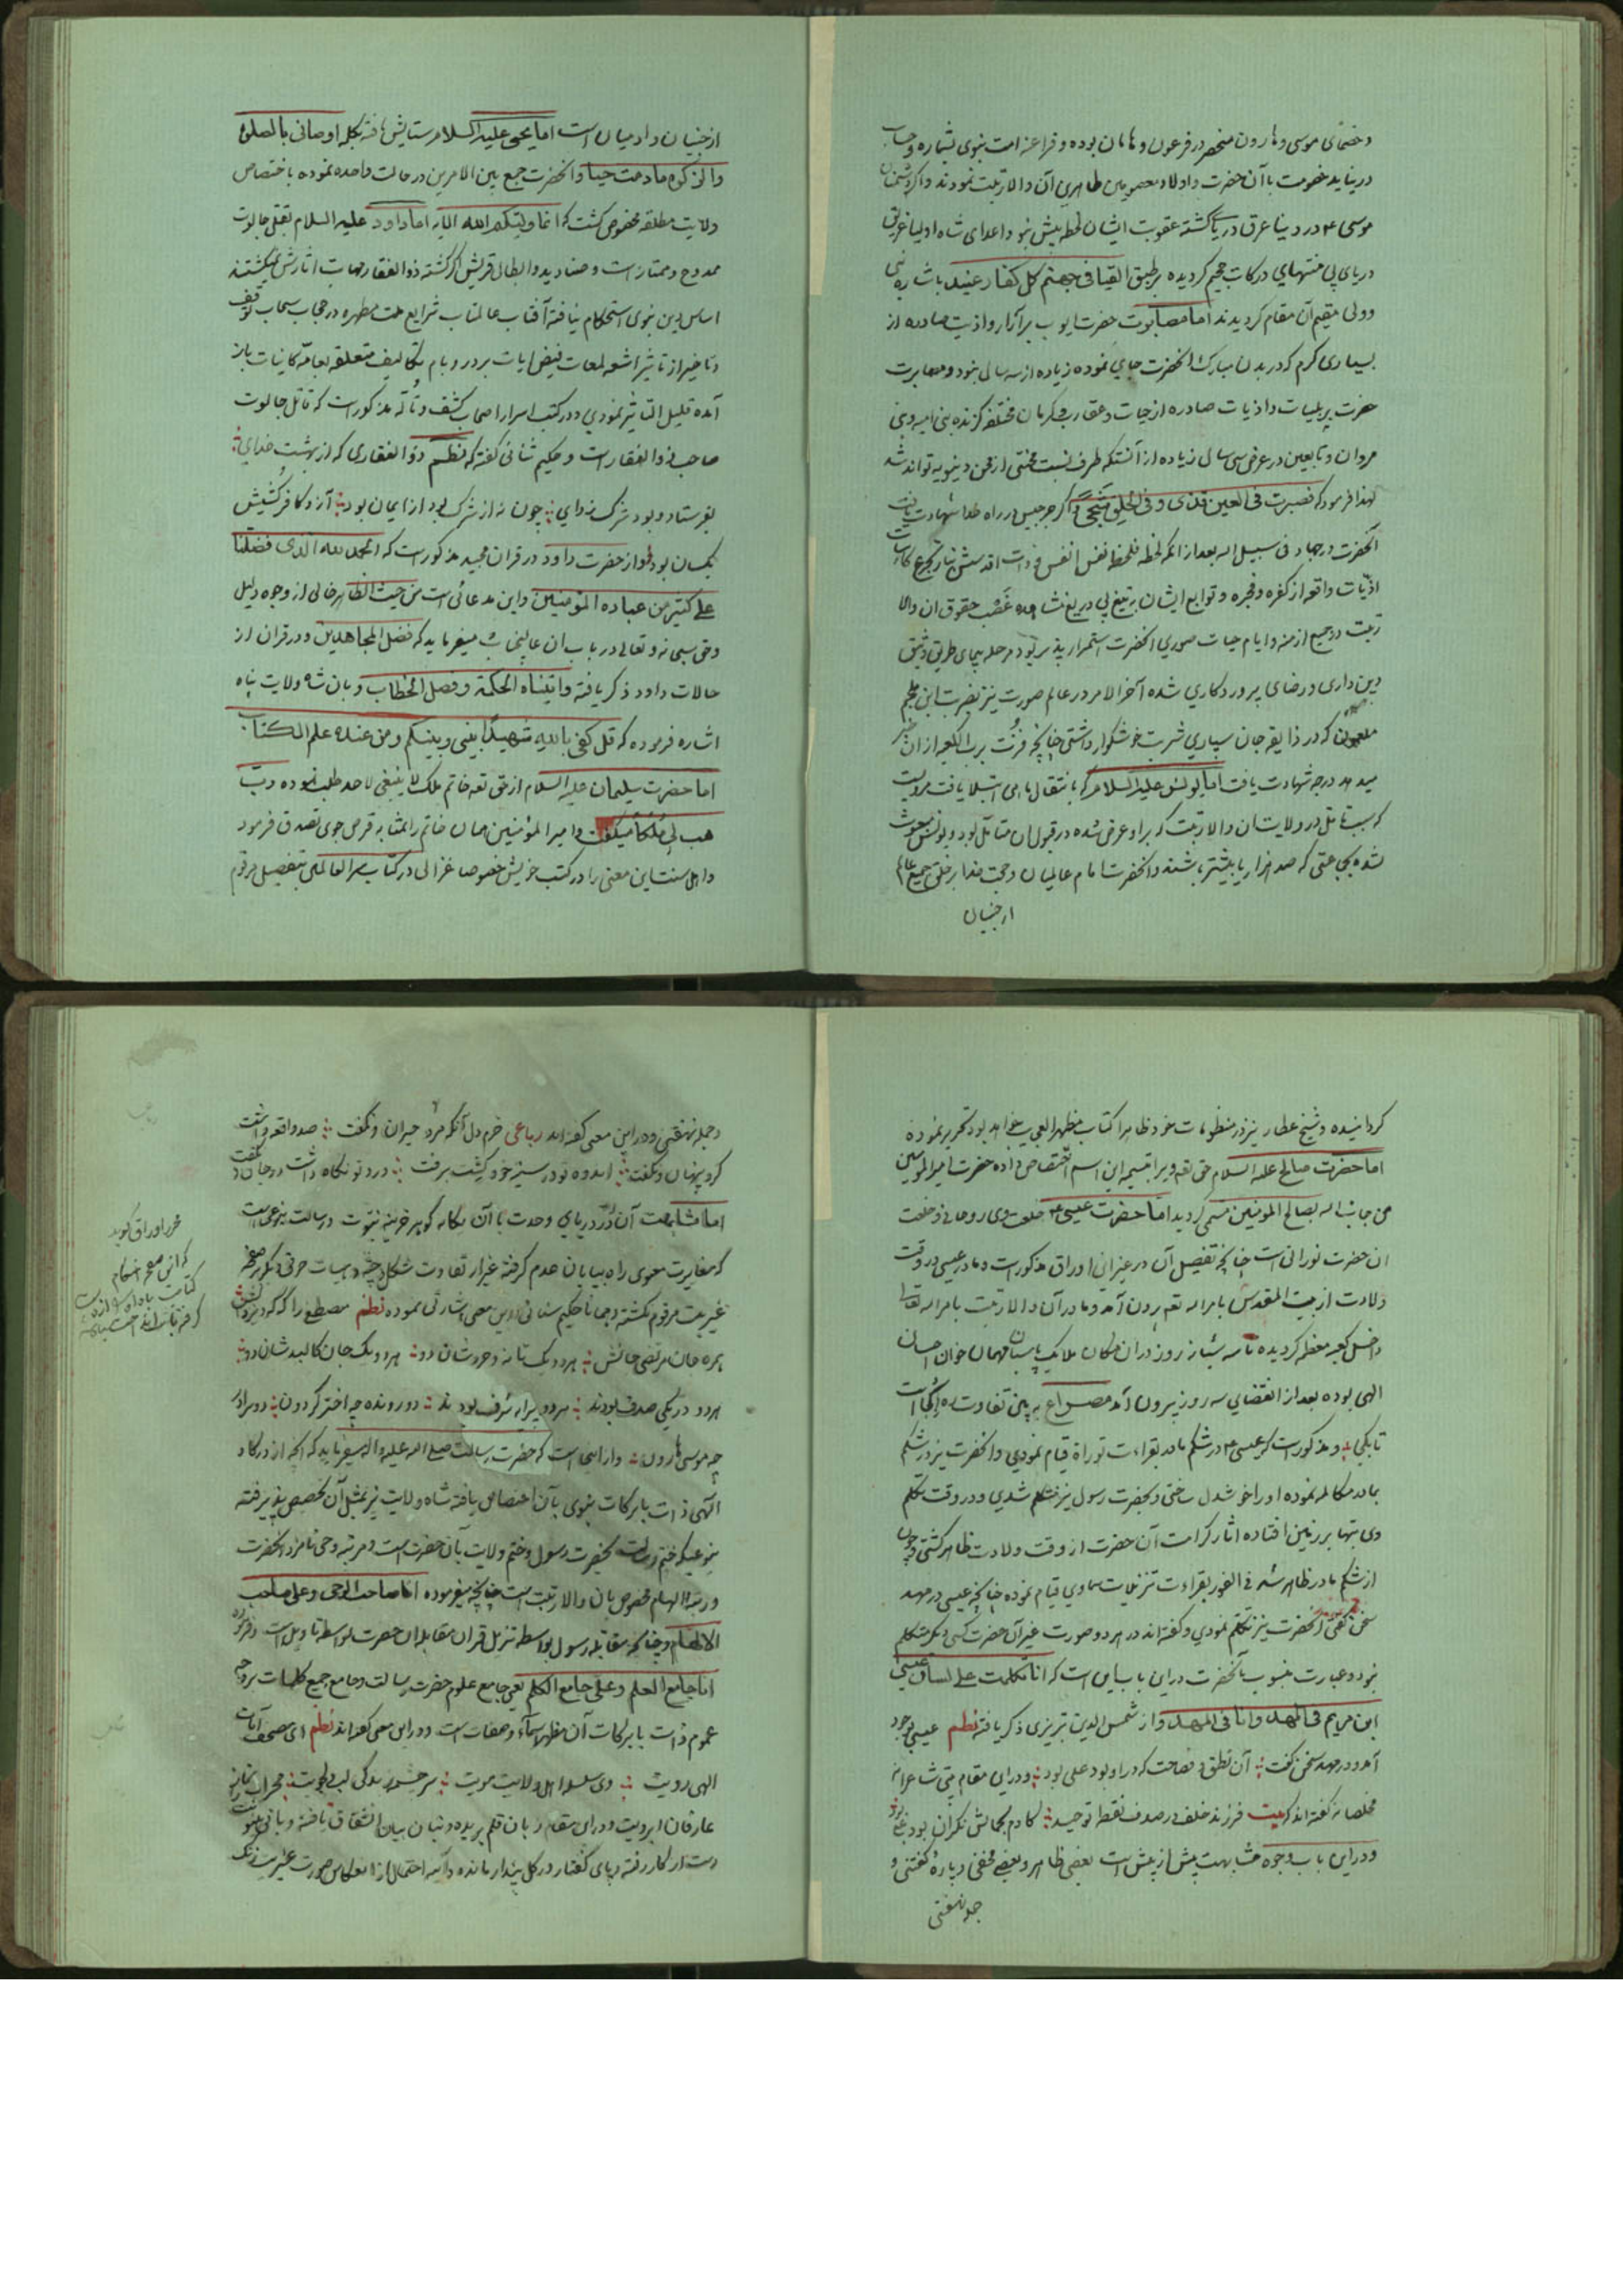 و خصمای موسی و هارون منحصر در فرعون و هامان بوده و فراعنه امت نبوی بشماره و حساب
در نیاید خصومت با آن حضرت و اولاد معصومین طاهرین آن والا رتبت نمودند و اگر دشمنان
موسی ع در دنیا غرق دریا گشته عقوبت ایشان لحظه بیش نبود اعدای شاه اولیا غریق
دریای بی منتهای درکات جحیم گردیده بر طبق القیا فی جهنم کل کفار عنید باشاره نبی
و ولی مقیم آن مقام گردیدند اما مصابرت حضرت ایوب بر آزار و اذیت صادره از
بسیاری کرم که در بدن مبارک آنحضرت جای نموده زیاده از سه سال نبود و مصابرت
حضرت بر بلیات و اذیات صادره از حیات و عقارب و کرمان مختلفه گزنده بنی امیه و بنی
مروان و تابعین در عرض سی سال زیاده از آنستکه طرف نسبت محنتی از محن دنیویه تواند شد
لهذا فرمود که فصبرت فی العین قذی و فی الحلق شجی و اگر جرجیس در راه خدا شهادت یافت
آنحضرت در جهاد فی سبیل الله بعد از آنکه لحظه فلحظه نفس انفس و ذات اقدسش
اذیات واقعه از کفره و فجره و توابع ایشان بر تیغ بی دریغ غصب حقوق آن والا
رتبت در جمیع ازمنه و ایام حیات صوری آنحضرت استمرار پذیر بود مرحله پیمای طریق
دین داری و رضای پروردگاری شده آخر الامر در عالم صورت نیز بضربت ابن ملجم
ملعون که در ذایقه جان سپاری شربت خوشگوار داشتی چنانچه فزت برب الکعبه از آن خبر
میدهد درجه شهادت یافت اما یونس علیه السلام که بانتقال ماهی ابتلا یافت مرویست
که بسبب تامل در ولایت آن والا رتبت که بر او عرض شده در قبول آن متامل بود و یونس مبعوث
شده بجماعتی که صد هزار یا بیشتر باشند و آنحضرت امام عالمیان و حجت خدا بر خلق جمیع عالم
از جنیان
از جنیان و آدمیان است اما یحیی علیه السلام ستایش یافته بکلمه اوصانی بالصلوة
والزکوة مادمت حیا و آنحضرت جمع بین الامرین در حالت واحده نموده باختصاص
ولایت مطلقه مخصوص گشت که انما ولیکم الله الایه اما داود علیه السلام بقتل جالوت
ممدوح و ممتاز است و صنادید و ابطال قریش اگر کشته ذوالفقار مهابت آثارش نمیگشتند
اساس دین نبوی استحکام نیافته آفتاب عالمتاب شرایع ملت مطهره در حجاب سحاب توقف
و تاخیر از تاثیر اشعه لمعات فیض ایات بر در و بام تکالیف متعلقه بعامه کاینات باز
آمده قلیل التاثیر نمودی و در کتب اسرار اصحاب کشف و تاله مذکور است که قاتل جالوت
صاحب ذوالفقار است و حکیم سنائی گفته که نظم ذوالفقاری که از بهشت خدای
بفرستاد و بود شرک زدای چون نه از شرک بود از ایمان بود آرزو کافر کشیش
یکسان بود و از حضرت داود در قران مجید مذکور است که الحمد لله الذی فضلنا
علی کثیر من عباده المؤمنین و این مدعائی است من حیث الظاهر خالی از وجوه دلیل
و حق سبحانه و تعالی در باب آن عالیجناب میفرماید که فضل المجاهدین و در قران از
حالات داود ذکر یافته و اتیناه الحکمة و فصل الخطاب و بان شاه ولایت پناه
اشاره فرموده که قل کفی بالله شهیدا بینی و بینکم و من عنده علم الکتاب
اما حضرت سلیمان علیه السلام از حق تعه خاتم ملک لا ینبغی لاحد طلب نموده رب
هب لی ملکا میگفت و امیر المؤمنین همان خاتم را بمثابه قرص جوی تصدق فرمود
و اهل سنت این معنی را در کتب خویش خصوصا غزالی در کتاب سر العالمین بتفصیل مرقوم
گردانیده و شیخ عطار نیز در منظومات خود ظاهرا کتاب مظهر العجایب خواهد بود تحریر نموده
اما حضرت صالح علیه السلام حق تعه ویرا بتسمیه این اسم اختصاص داده حضرت امیر المومنین
من جانب الله بصالح المومنین مسمی گردید اما حضرت عیسی ع خلقت وی روحانی و خلقت
آن حضرت نورانی است چنانچه تفصیل آن در غیر این اوراق مذکور است و مادر عیسی در وقت
ولادت از بیت المقدس بامر اله تعه بیرون آمد و مادر آن والا رتبت بامر اله تعالی
داخل کعبه معظمه گردیده تا سه شبانه روز در آن مکان ملایک پاسبان مهمان خوان احسان
الهی بوده بعد از انقضای سه روز بیرون آمد مصراع به بین تفاوت ره از کجا است
تا بکجا و مذکور است که عیسی ع در شکم مادر بقراءت توراة قیام نمودی و آنحضرت نیز در شکم
مادر مکالمه نموده او را خوشدل ساختی و بحضرت رسول نیز متکلم شدی و در وقت تکلم
وی بتها بر زمین افتاده آثار کرامت آن حضرت از وقت ولادت ظاهر گشتی و چون
از شکم مادر ظاهر شد فی الفور بقراءت تنزیلات سماوی قیام نموده چنانچه عیسی در مهد
سخن گفتی آنحضرت نیز تکلم نمودی و گفته اند در هر دو صورت غیر آن حضرت کسی دیگر متکلم
نبود و عبارت منسوب بآنحضرت در این باب این است که انا تکلمت علی لسان عیسی
ابن مریم فی المهد و انا فی المهد و از شمس الدین تبریزی ذکر یافته نظم عیسی بوجود
آمد و در مهد سخن گفت آن نطق و فصاحت که در او بود علی بود و در این مقام بیتی شاعرانه
مخلصانه گفته اند که بیت فرزند خلف در صدف نقطه توحید کادم بجمالش نگران بود علی بود
و در این باب وجوه مشابهت بیش از پیش است بعضی ظاهر و بعضی مخفی و پاره گفتنی و
جمله نهفتنی
و جمله نهفتنی و در این معنی گفته اند رباعی خرم دل آنکه مرد حیران و نگفت صد واقعه داشت
کرد پنهان و نگفت اندوه تو در سینه خود کشت برفت درد تو نگاه داشت در جان و نگفت
اما مشابهت آن در دریای وحدت با آن یگانه گوهر خزینه نبوت و رسالت بنوعی است
که مغایرت معنوی راه بیابان عدم گرفته غیر از تفاوت شکل و جثه و هیات حرفی دیگر بر صفحه
غیریت مرقوم نگشته و همانا حکیم سنائی در این معنی اشارتی نموده نظم مصطفی را که کردگار
همره جان مرتضی جانش هر دو یک تا نه و خردشان دو هر دو یک جان کالبدشان دو
هر دو در یکی صدف بودند هر دو پیرایه شرف بودند دو رونده چه اختر گردون دو برادر
چه موسی و هارون و از این است که حضرت رسالت صلی الله علیه و اله میفرماید که آنچه از درگاه
الهی ذات با برکات نبوی بآن اختصاص یافته شاه ولایت نیز بمثل آن تخصیص پذیرفته
بنوعیکه ختم رسالت بحضرت رسول و ختم ولایت بآن حضرت است و مرتبه وحی نامزد آنحضرت
و رتبه الهام مخصوص بان والا رتبت است چنانچه میفرموده انا صاحب الوحی و علی صاحب
الالهام و چنانچه مقاتله رسول بواسطه تنزیل قران مقاتله آن حضرت بواسطه تاویل است و فرمود
انا جامع العلم و علی جامع الکلم یعنی جامع علوم حضرت رسالت و جامع جمیع کلمات
عموم ذات با برکات آن مظهر اسماء و صفات است و در این معنی گفته اند نظم ای مصحف آیات
الهی رویت وی سلسله اهل ولایت مویت سرچشمه زندگی لب دلجویت محراب نماز
عارفان ابرویت و در این مقام زبان قلم بریده و بنان بیان انشقاق یافته و
دست از کار رفته و پای گفتار در گل پندار مانده و آینه احتمال را انعکاس صورت غیریت زنگ
محرر اوراق گوید
که این صفحه
کتابت